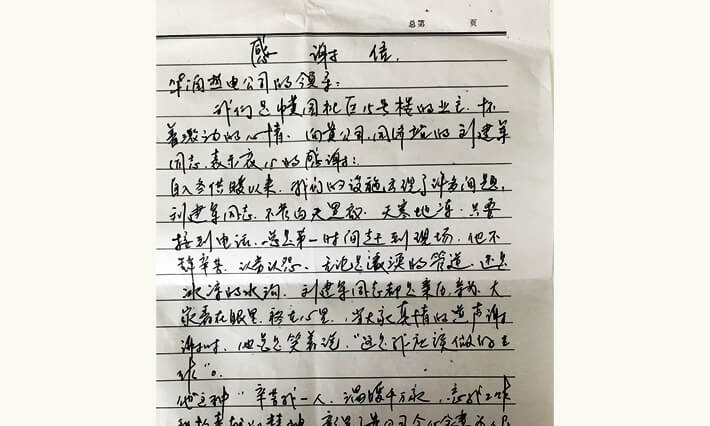 总第 页
感谢信
华润热电公司的领导:
我们是惠园社区15号楼的业主,怀
着激动的心情,向贵公司 的刘建军
同志,表示衷心的感谢:
自入冬供暖以来,我们的设施出现了许多问题,
刘建军同志,不管白天黑夜,天寒地冻,只要
接到电话,总是第一时间赶到现场,他不
辞辛苦,认劳认怨,无论是滚烫的管道,还是
冰凉的水沟,刘建军同志都是亲历亲为,大
家看在眼里,记在心里,当大家真情的说声谢
谢时,他总是笑着说,“这是我应该做的工
作”。
他这种“辛苦我一人,温暖千万家,忘我工作
精神,